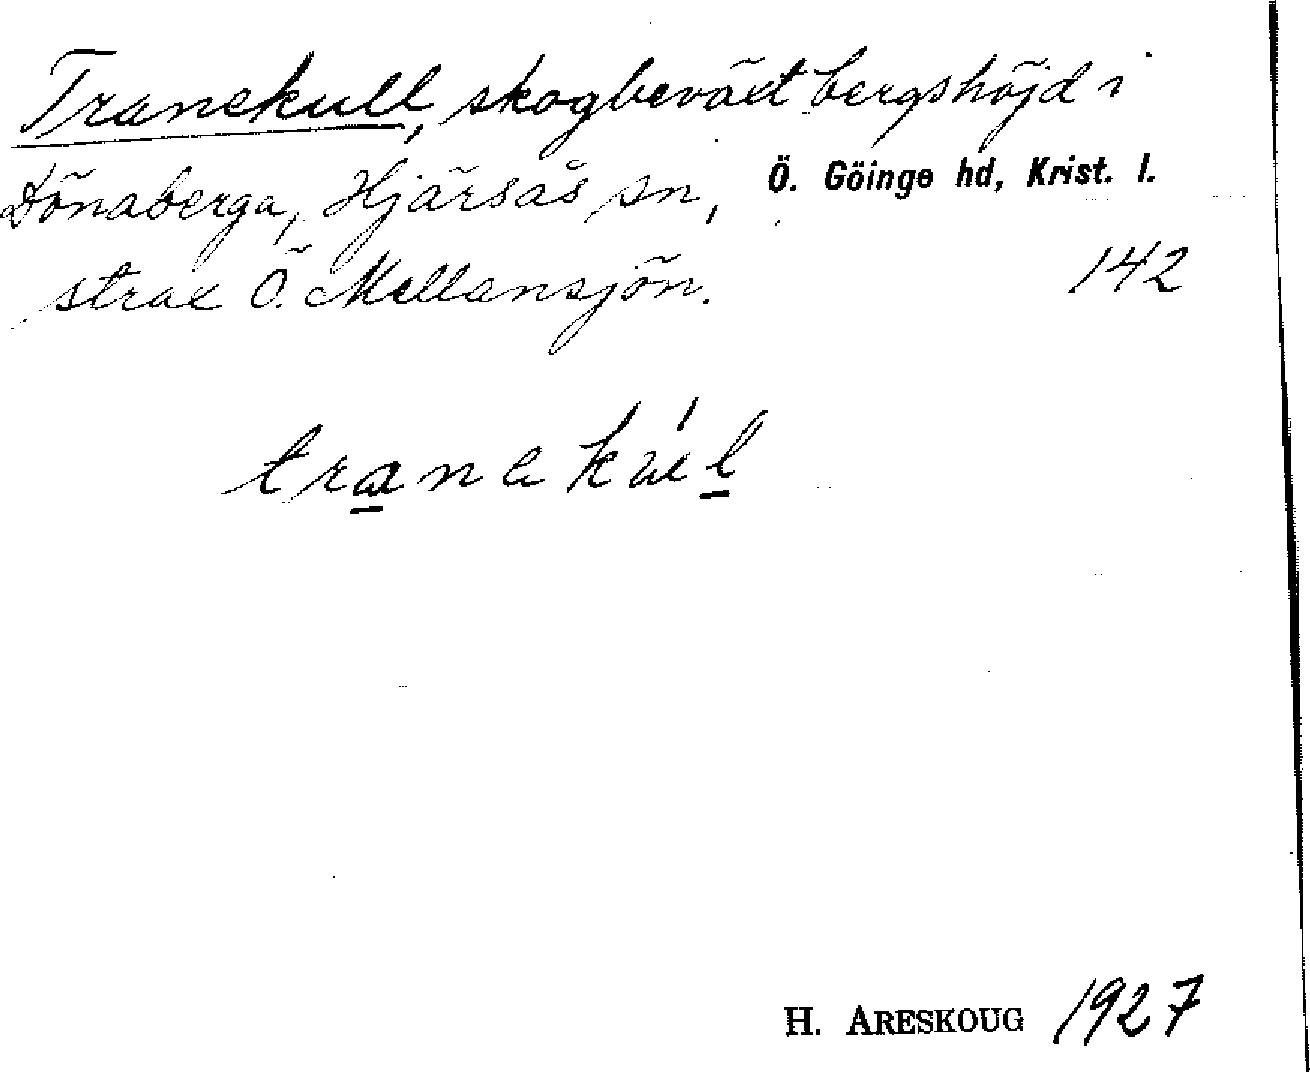 Tranekull, skogbeväxt bergshöjd i
Dönaberga, Hjärsås sn, Ö. Göinge hd, Krist. l.
strax Ö. Mellansjön. 142
tranekul
H. ARESKOUG 1927